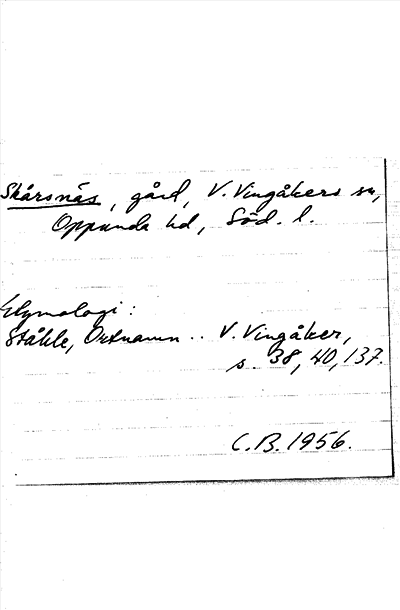 Skårsnäs, gård, V. Vingåkers sn,
Oppunda hd, Söd. l.
Etymologi:
Ståhle, Ortnamn .. V. Vingåker,
s. 38, 40, 137.
C.B. 1956.